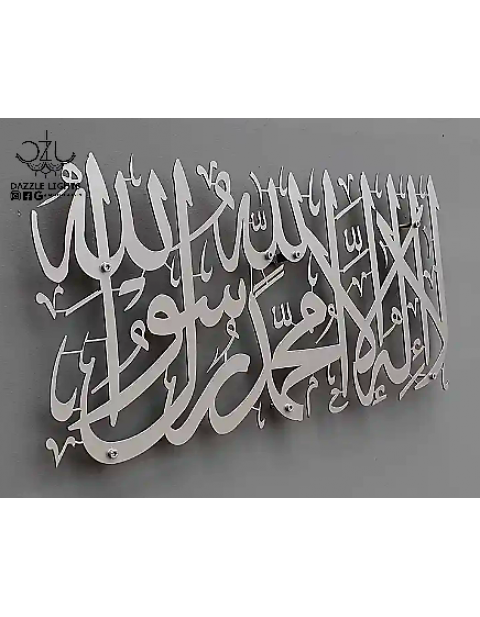 DZL
DAZZLE LIGHTS
لا إله إلا الله محمد رسول الله